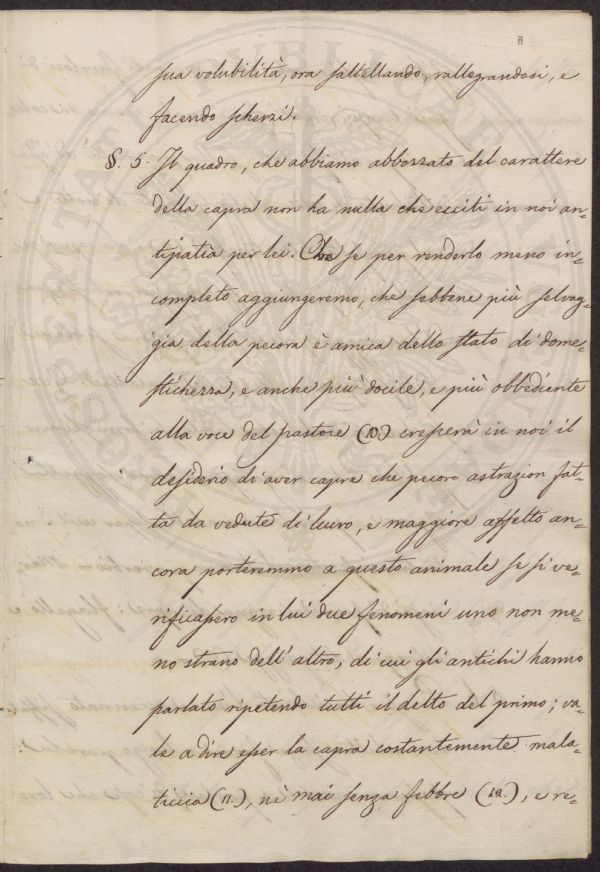 8
sua volubilità, ora saltellando, rallegrandosi, e
facendo scherzi.
§. 5. Il quadro, che abbiamo abbozzato del carattere
della capra non ha nulla che ecciti in noi an=
tipatia per lei. Che se per renderlo meno in=
completo aggiungeremo, che sebbene più selvag=
gia della pecora è amica dello stato di dome=
stichezza, e anche più docile, e più obbediente
alla voce del pastore (10) crescerà in noi il
desiderio di aver capre che pecore astrazion fat=
ta da vedute di lucro, e maggiore affetto an=
cora porteremmo a questo animale se si ve=
rificassero in lui due fenomeni uno non me=
no strano dell'altro, di cui gli antichi hanno
parlato ripetendo tutti il detto del primo; va=
le a dire esser la capra costantemente mala=
ticcia (11.), nè mai senza febbre (12.), e re=